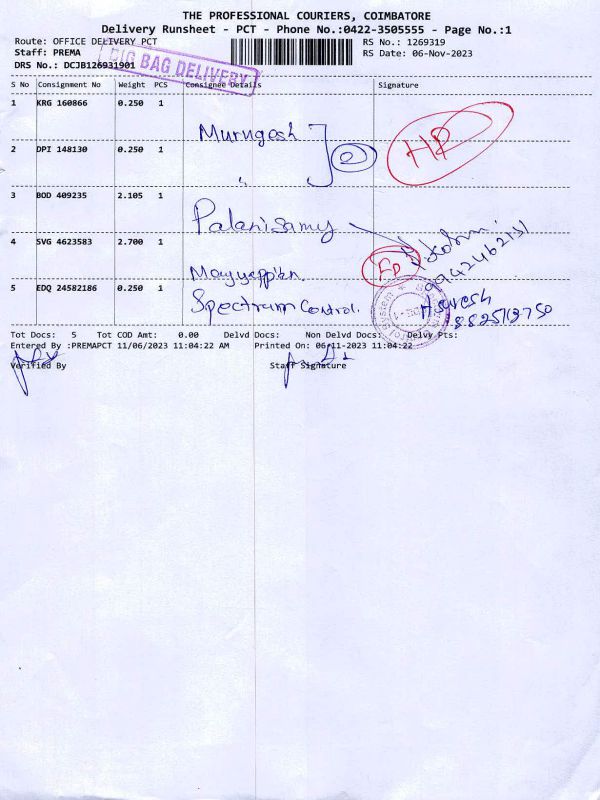 THE PROFESSIONAL COURIERS, COIMBATORE
Delivery Runsheet - PCT - Phone No.:0422-3505555 - Page No.:1
Route: OFFICE DELIVERY PCT
RS No.: 1269319
Staff: PREMA
RS Date: 06-Nov-2023
DRS No.: DCJB126931901
BIG BAG DELIVERY
S No Consignment No Weight PCS Consignee Details Signature
1 KRG 160866 0.250 1
Murugesh
HP
2 DPI 148130 0.250 1
"
3 BOD 409235 2.105 1
Palanisamy
4 SVG 4623583 2.700 1
9942462131
5 EDQ 24582186 0.250 1
Spectrum Control.
Tot Docs: 5 Tot COD Amt: 0.00 Delvd Docs: Non Delvd Docs: Delvy Pts:
Entered By :PREMAPCT 11/06/2023 11:04:22 AM Printed On: 06-11-2023 11:04:22
Verified By Staff Signature